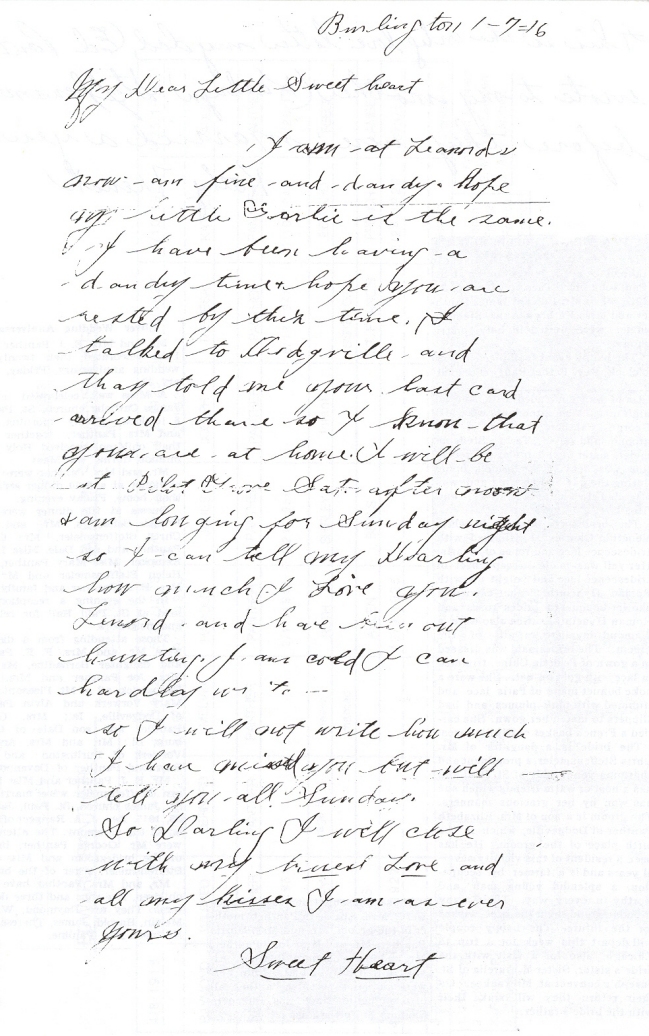 Burlington 1-7-16
My Dear Little Sweet heart
I am at Leanords
now am fine and dandy. hope
my little is the same.
I have been having a
dandy time hope you are
rested by this time. I
talked to Dodgville and
thay told me your last card
arrived thare so I know that
you are at home. I will be
at Pilot Grove Sat. after noon
I am longing for Sunday night
so I can tell my Darling
how much I Love you.
Lenord and I have been out
hunting. I am cold I can
hardley
so I will not write how much
I have missed you but will
tell you all Sunday.
So Darling I will close
with my Love and
all my kisses I am as ever
yours.
Sweet Heart